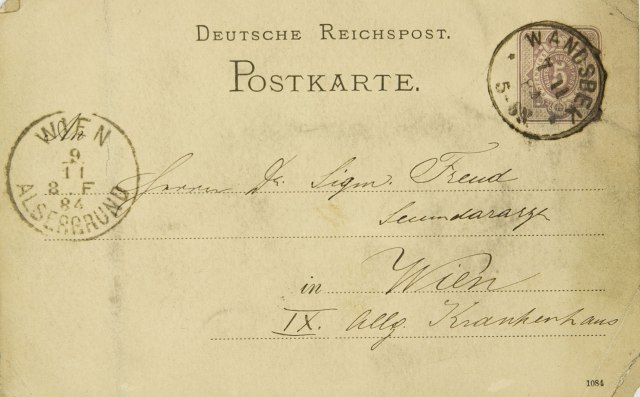 DEUTSCHE REICHSPOST.
POSTKARTE.
WANDSBEK
7 11
5-6N
An
WIEN
9
11
8 F
84
ALSERGRUND
Herrn Dr. Sigm. Freud
Secundararzt
in Wien
IX. Allg. Krankenhaus
1084